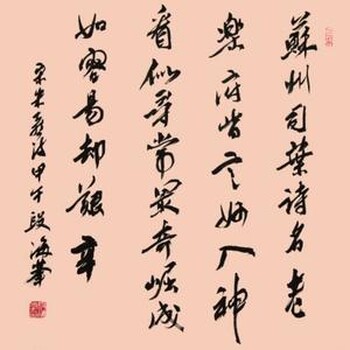 蘇州司業詩名老
樂府皆言妙入神
看似尋常最奇崛成
如容易却艱辛
甲午段海